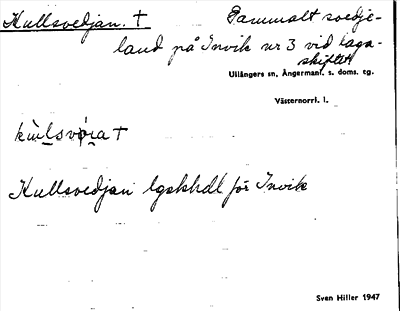 Kullsvedjan. † Gammalt svedje-
land på Invik nr 3 vid laga-
skiftet
Ullångers sn, Ångermanl. s. doms. tg.
Västernorrl. l.
†
Kullsvedjan lgskhdl för Invik
Sven Hiller 1947